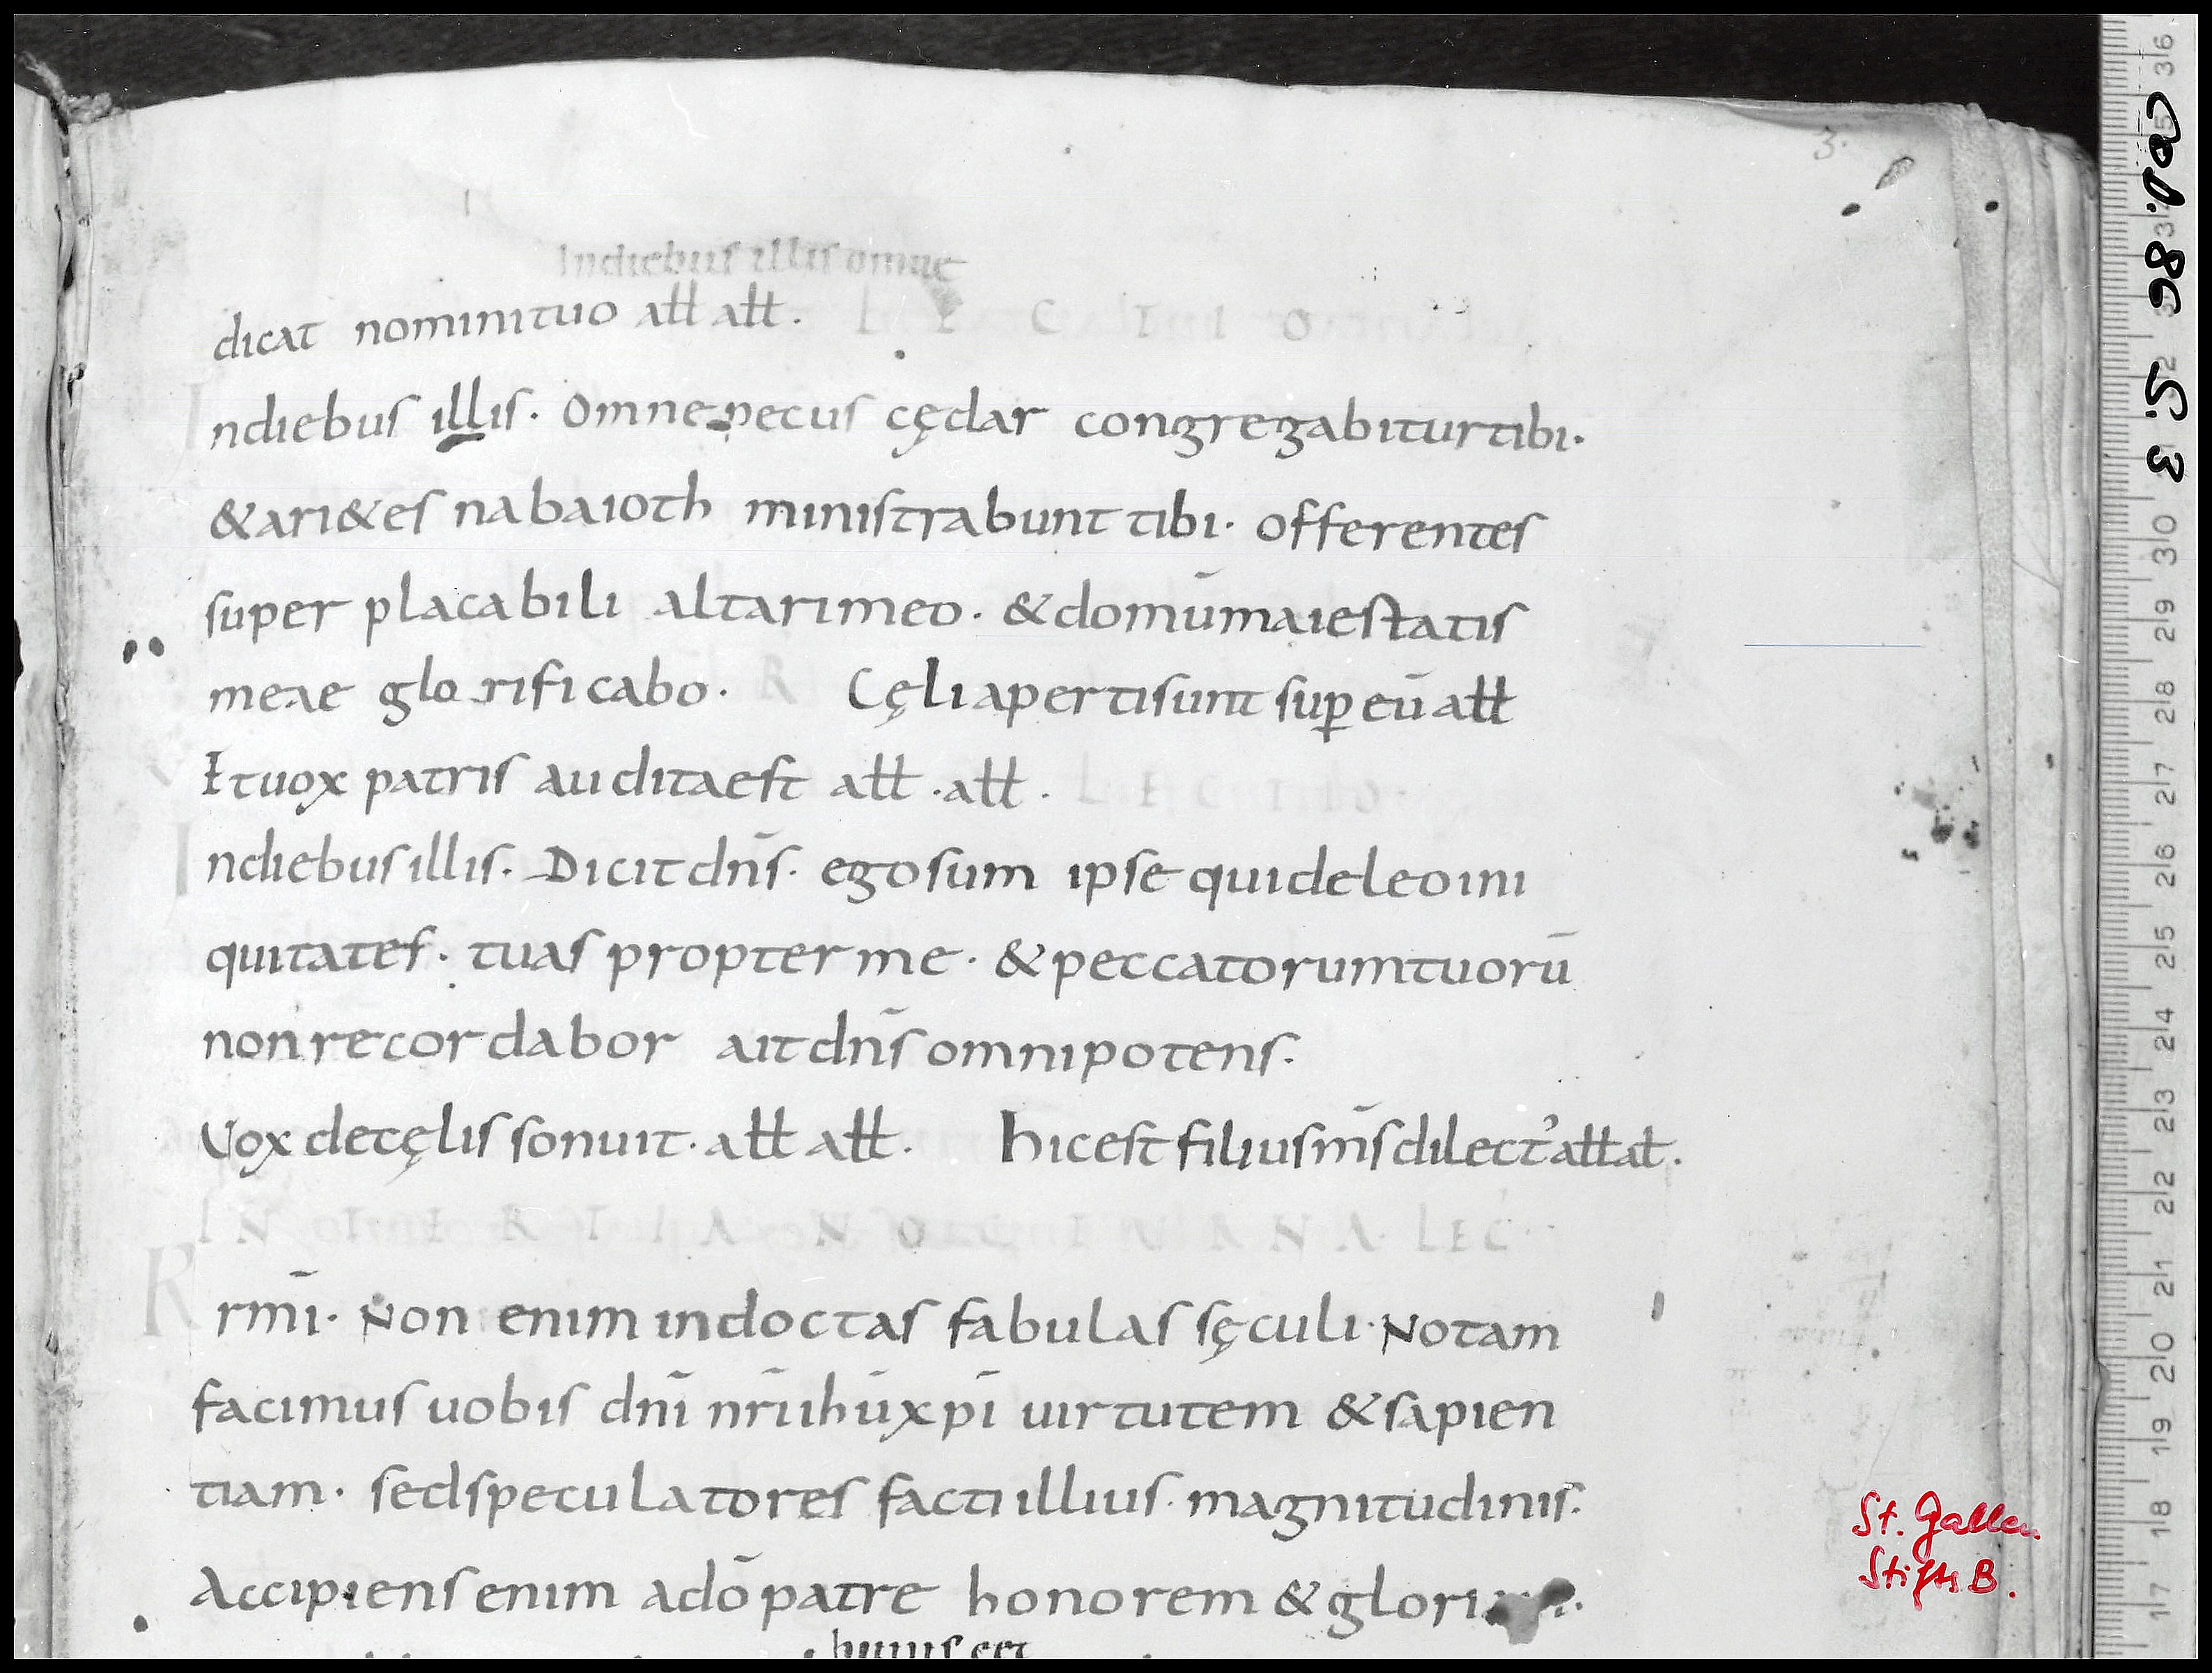 3.
Indiebus illis omne
dicat nomini tuo aƚƚ aƚƚ. L E C T I O
Indiebus illis. Omne pecus cędar congregabitur tibi.
& ari&es nabaioth ministrabunt tibi. offerentes
super placabili altari meo. & domū maiestatis
meae glorificabo. R Cęli aperti sunt suꝑ eū aƚƚ
Et uox patris audita est aƚƚ. aƚƚ. L E C T I O.
Indiebus illis. Dicit dn̄s. ego sum ipse qui deleo ini
quitates. tuas propter me. & peccatorum tuorū
non recordabor ait dn̄s omnipotens.
Vox de cęlis sonuit. aƚƚ aƚƚ. hic est filius m̄s dilect᾽ aƚƚ aƚ.
I N T E R T I A N O C T U R N A LEC
R rm̄i. Non enim indoctas fabulas sęculi. Notam
facimus uobis dn̄i nr̄i ihū xp̄i uirtutem & sapien
tiam. sed speculatores facti illius. magnitudinis.
Accipiens enim a dō patre honorem &
huius cet
Cod. 86 S. 3
St. Gallen
Stifts B.
36 35 34 33 32 31 30 29 28 27 26 25 24 23 22 21 20 19 18 17